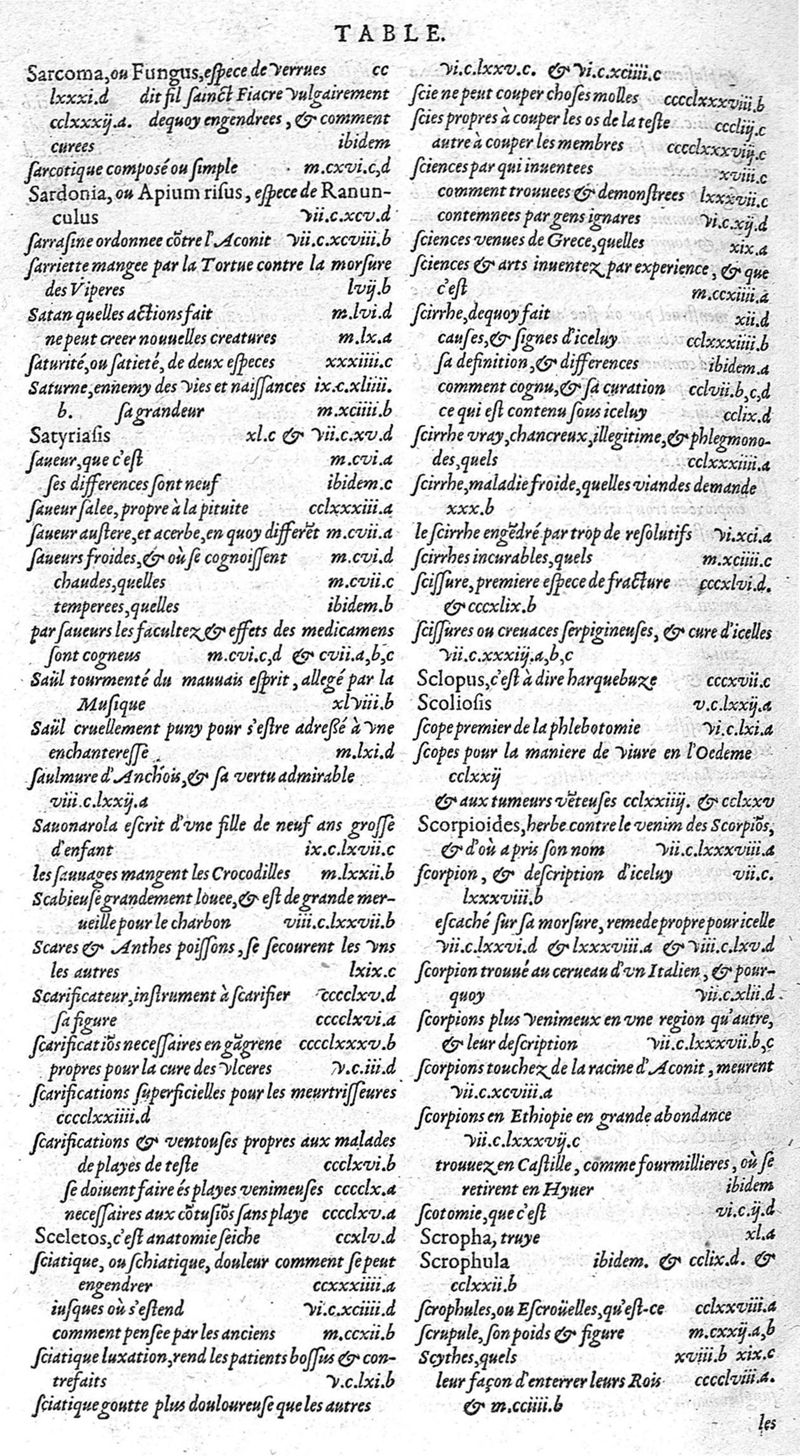 TABLE.
Sarcoma, ou Fungus, eſpece de verrues cc
lxxxi.d dit fil ſainct Fiacre vulgairement
cclxxxij.a. dequoy engendrees, & comment
curees ibidem
ſarcotique composé ou ſimple m.cxvi.c,d
Sardonia, ou Apium riſus, eſpece de Ranun-
culus vii.c.xcv.d
ſarraſine ordonnee cõtre l'Aconit vii.c.xcviii.b
ſarriette mangee par la Tortue contre la morſure
des Viperes lvij.b
Satan quelles actions fait m.lvi.d
ne peut creer nouuelles creatures m.lx.a
ſaturité, ou ſatieté, de deux eſpeces xxxiiii.c
Saturne, ennemy des vies et naiſſances ix.c.xliiii.
b. ſa grandeur m.xciiii.b
Satyriaſis xl.c & vii.c.xv.d
ſaueur, que c'eſt m.cvi.a
ſes differences ſont neuf ibidem.c
ſaueur ſalee, propre à la pituite cclxxxiii.a
ſaueur auſtere, et acerbe, en quoy differẽt m.cvii.a
ſaueurs froides, & où ſe cognoiſſent m.cvi.d
chaudes, quelles m.cvii.c
temperees, quelles ibidem.b
par ſaueurs les facultez & effets des medicamens
ſont cogneus m.cvi.c,d & cvii.a,b,c
Saül tourmenté du mauuais eſprit, allegé par la
Muſique xlviii.b
Saül cruellement puny pour s'eſtre adreßé à vne
enchantereſſe m.lxi.d
ſaulmure d'Anchois, & ſa vertu admirable
viii.c.lxxij.a
Sauonarola eſcrit d'vne fille de neuf ans groſſe
d'enfant ix.c.lxvii.c
les ſauuages mangent les Crocodilles m.lxxii.b
Scabieuſe grandement louee, & eſt de grande mer-
ueille pour le charbon viii.c.lxxvii.b
Scares & Anthes poiſſons, ſe ſecourent les vns
les autres lxix.c
Scarificateur, inſtrument à ſcarifier cccclxv.d
ſa figure cccclxvi.a
ſcarificatiõs neceſſaires en gãgrene cccclxxxv.b
propres pour la cure des vlceres v.c.iii.d
ſcarifications ſuperficielles pour les meurtriſſeures
cccclxxiiii.d
ſcarifications & ventouſes propres aux malades
de playes de teſte ccclxvi.b
ſe doiuent faire és playes venimeuſes cccclx.a
neceſſaires aux cõtuſiõs ſans playe cccclxv.a
Sceletos, c'eſt anatomie ſeiche ccxlv.d
ſciatique, ou ſchiatique, douleur comment ſe peut
engendrer ccxxxiiii.a
iuſques où s'eſtend vi.c.xciiii.d
comment penſee par les anciens m.ccxii.b
ſciatique luxation, rend les patients boſſus & con-
trefaits v.c.lxi.b
ſciatique goutte plus douloureuſe que les autres
vi.c.lxxv.c. & vi.c.xciiii.c
ſcie ne peut couper choſes molles cccclxxxviii.b
ſcies propres à couper les os de la teſte cccliij.c
autre à couper les membres cccclxxxviij.c
ſciences par qui inuentees xviii.c
comment trouuees & demonſtrees lxxxvii.c
contemnees par gens ignares vi.c.xij.d
ſciences venues de Grece, quelles xix.a
ſciences & arts inuentez par experience, & que
c'eſt m.ccxiiii.a
ſcirrhe, dequoy fait xii.d
cauſes, & ſignes d'iceluy cclxxxiiii.b
ſa definition, & differences ibidem.a
comment cognu, & ſa curation cclvii.b,c,d
ce qui eſt contenu ſous iceluy cclix.d
ſcirrhe vray, chancreux, illegitime, & phlegmono-
des, quels cclxxxiiii.a
ſcirrhe, maladie froide, quelles viandes demande
xxx.b
le ſcirrhe engẽdré par trop de reſolutifs vi.xci.a
ſcirrhes incurables, quels m.xciiii.c
ſciſſure, premiere eſpece de fracture cccxlvi.d.
& cccxlix.b
ſciſſures ou creuaces ſerpigineuſes, & cure d'icelles
vii.c.xxxiij.a,b,c
Sclopus, c'eſt à dire harquebuze cccxvii.c
Scolioſis v.c.lxxij.a
ſcope premier de la phlebotomie vi.c.lxi.a
ſcopes pour la maniere de viure en l'Oedeme
cclxxij
& aux tumeurs vẽteuſes cclxxiiij. & cclxxv
Scorpioides, herbe contre le venim des Scorpiõs,
& d'où a pris ſon nom vii.c.lxxxviii.a
ſcorpion, & deſcription d'iceluy vii.c.
lxxxviii.b
eſcaché ſur ſa morſure, remede propre pour icelle
vii.c.lxxvi.d & lxxxviii.a & viii.c.lxv.d
ſcorpion trouué au cerueau d'vn Italien, & pour-
quoy vii.c.xlii.d.
ſcorpions plus venimeux en vne region qu'autre,
& leur deſcription vii.c.lxxxvii.b,c
ſcorpions touchez de la racine d'Aconit, meurent
vii.c.xcviii.a
ſcorpions en Ethiopie en grande abondance
vii.c.lxxxvij.c
trouuez en Caſtille, comme fourmillieres, où ſe
retirent en Hyuer ibidem
ſcotomie, que c'eſt vi.c.ij.d
Scropha, truye xl.a
Scrophula ibidem. & cclix.d. &
cclxxii.b
ſcrophules, ou Eſcroüelles, qu'eſt-ce cclxxviii.a
ſcrupule, ſon poids & figure m.cxxij.a,b
Scythes, quels xviii.b xix.c
leur façon d'enterrer leurs Rois cccclviii.a.
& m.cciiii.b
les